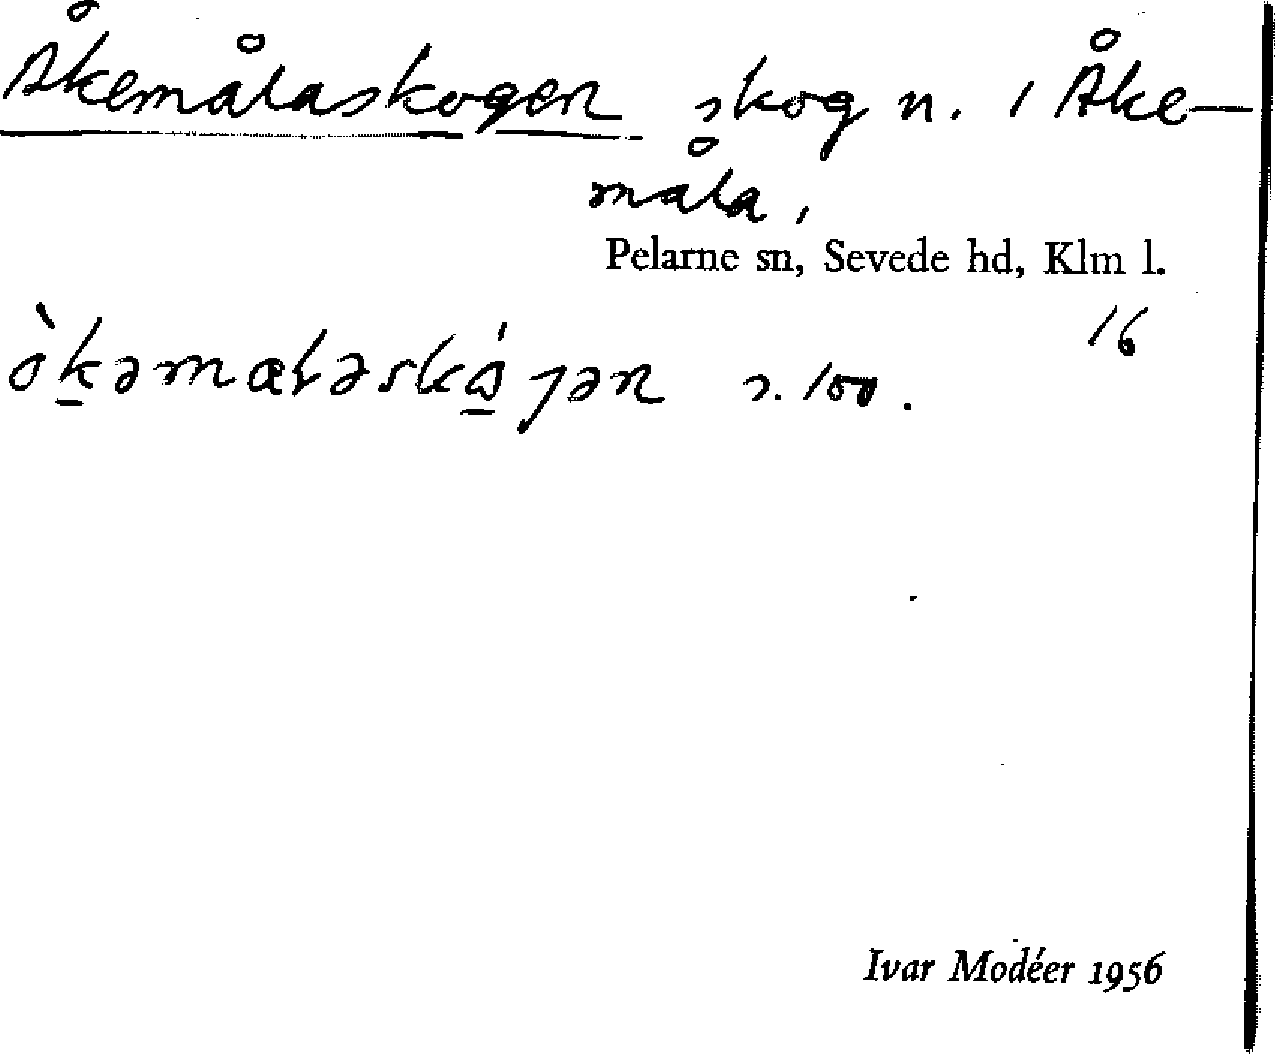 Åkemålaskogen skog n. i Åke-
måla,
Pelarne sn, Sevede hd, Klm l.
16
ò̀kəmaləskɷ́jən s. 100.
Ivar Modéer 1956